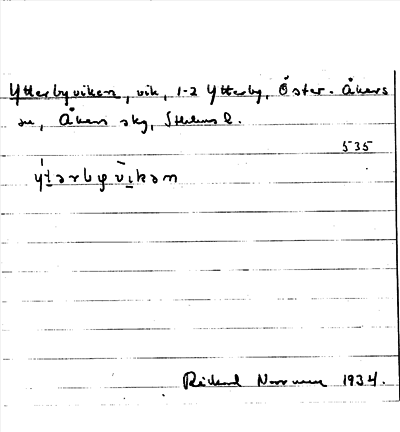 Ytterbyviken, vik, 1-2 Ytterby, Öster-Åkers
sn, Åkers skg, Sthlms l.
535
ýt̲ərbyvīkən
Rickard 1934.